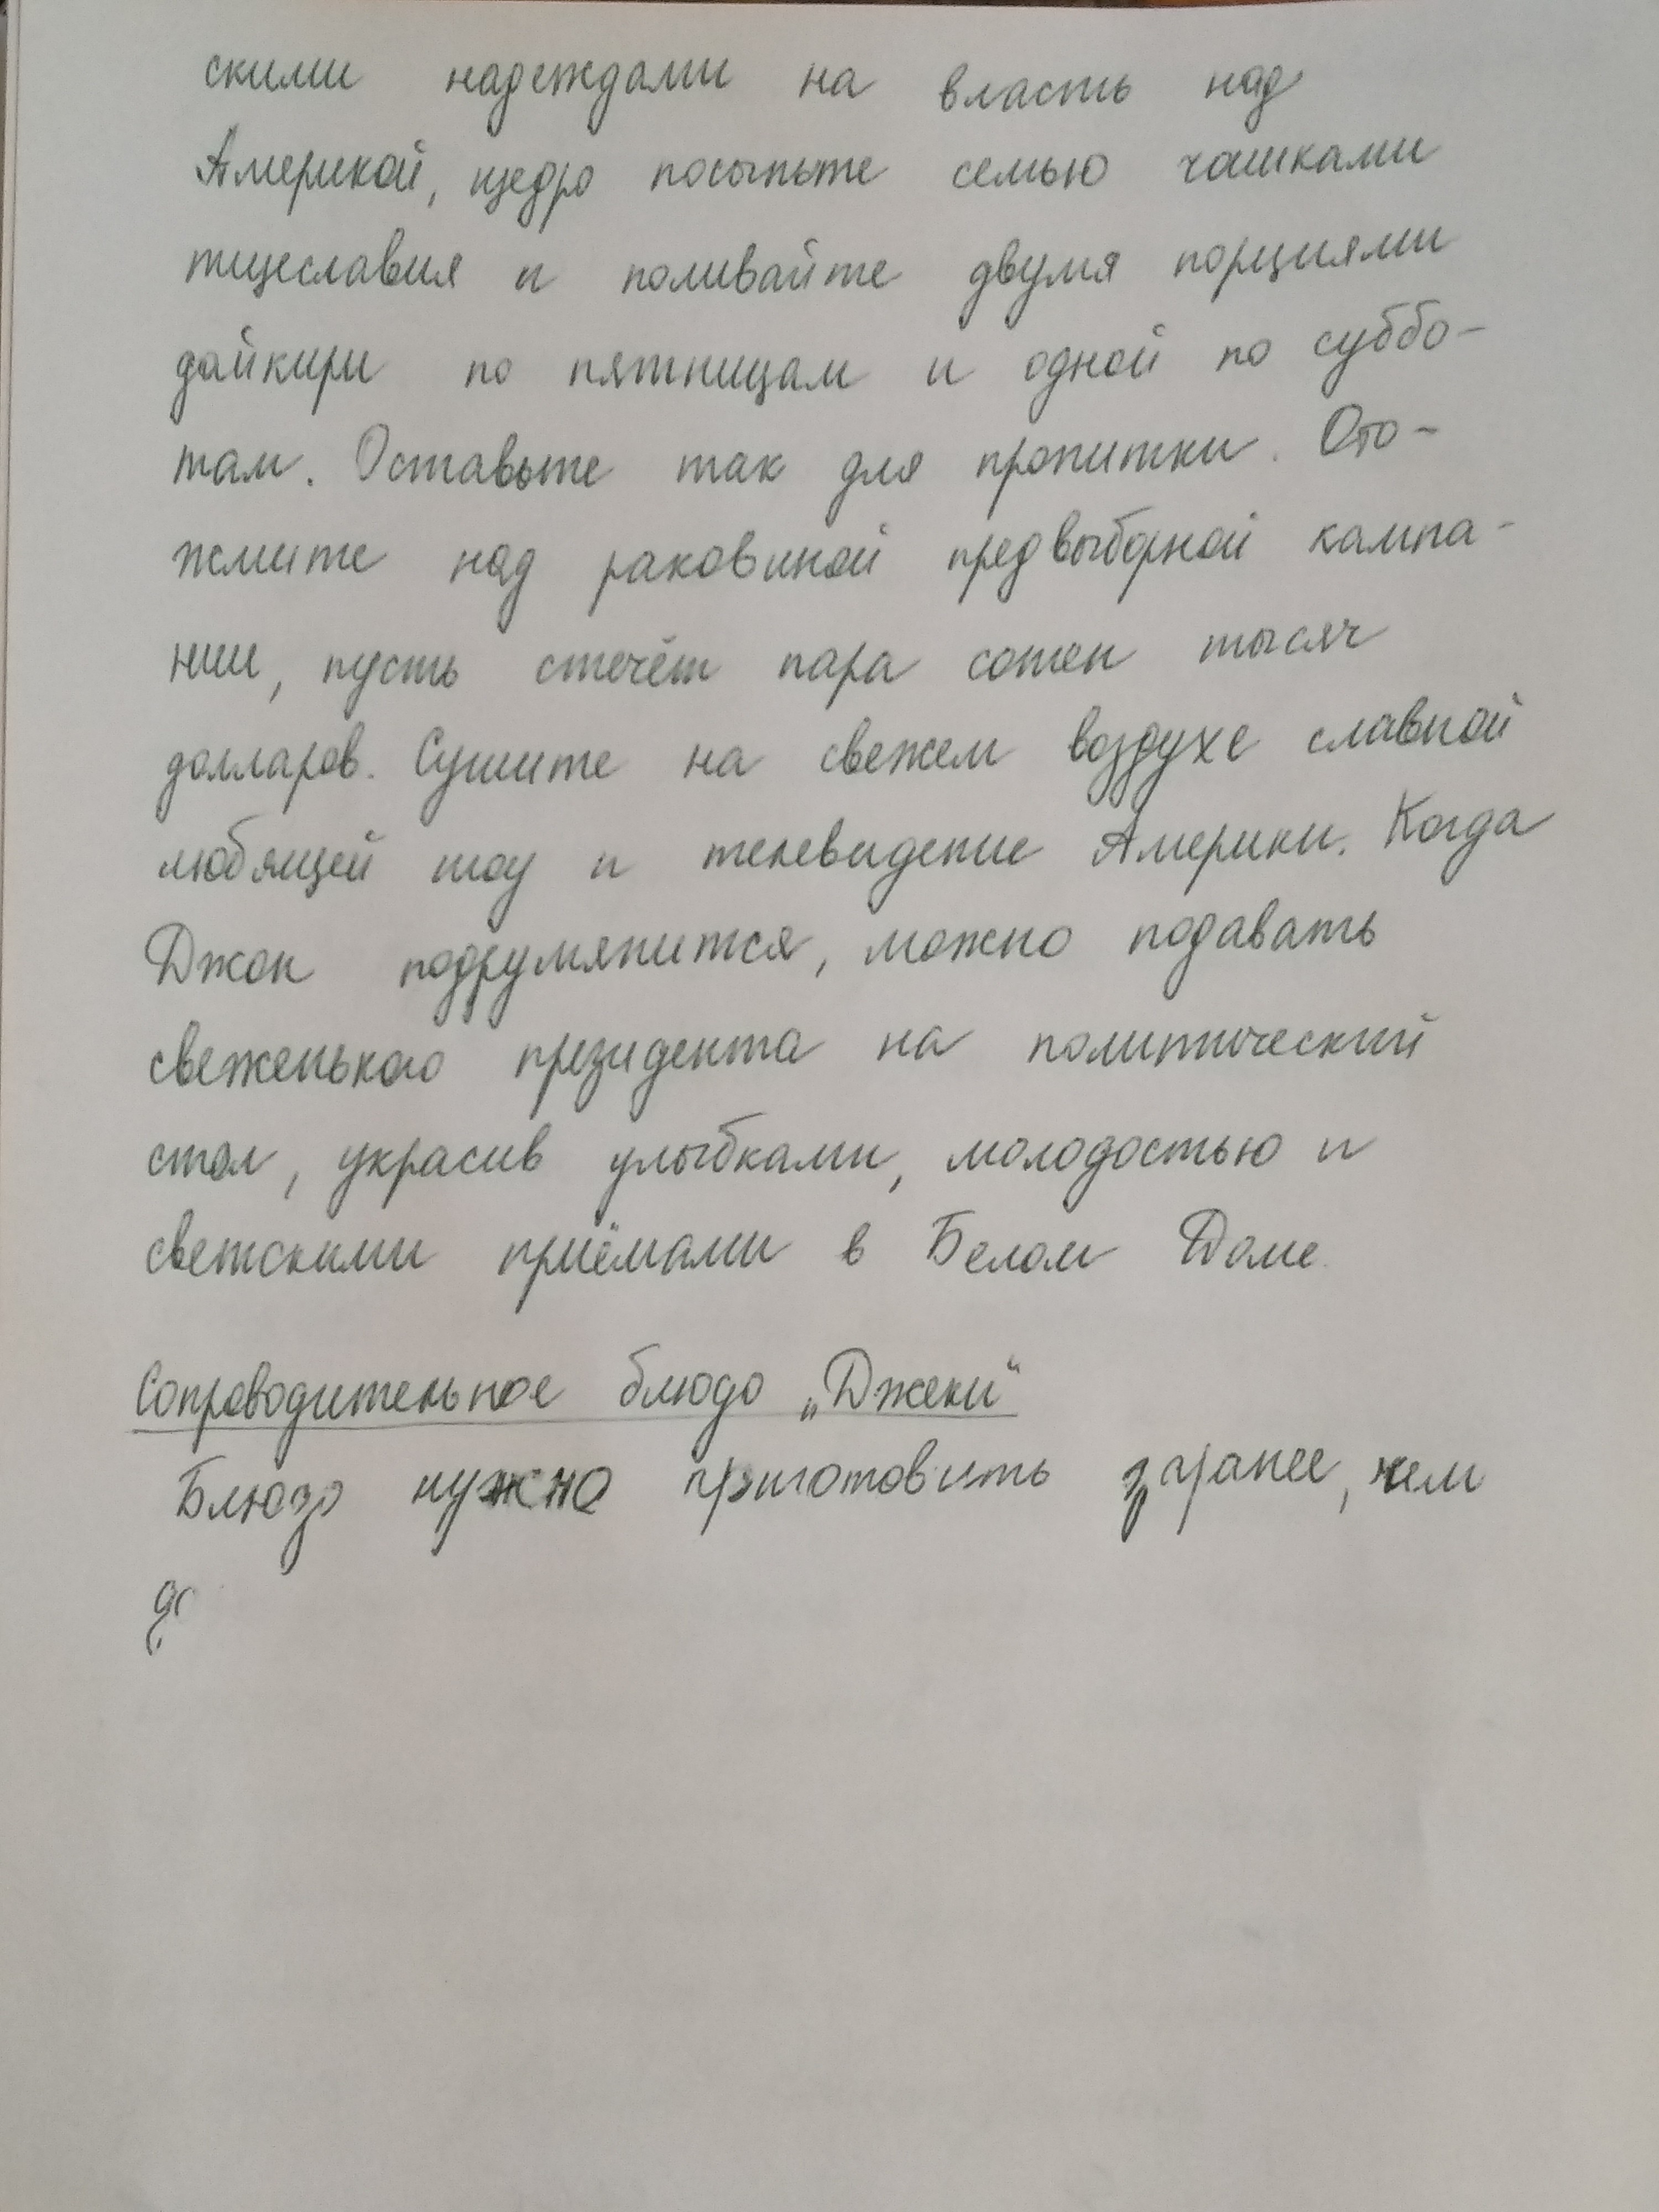 скими надеждами на власть над
Америкой, щедро посыпьте семью чашками
тщеславия и поливайте двумя порциями
дайкири по пятницам и одной по суббо-
там. Оставьте так для пропитки. Ото-
жмите над раковиной предвыборной кампа-
нии, пусть стечёт пара сотен тысяч
долларов. Сушите на свежем воздухе славной
любящей шоу и телевидение Америки. Когда
Джон подрумянится, можно подавать
свеженького президента на политический
стол, украсив улыбками, молодостью и
светскими приёмами в Белом Доме.
Сопроводительное блюдо „Джеки“
Блюдо нужно приготовить заранее, чем